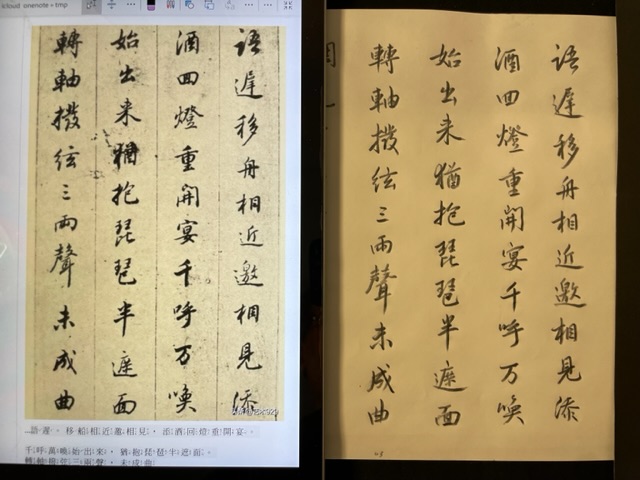 icloud onenote » tmp
語遲移舟相近邀相見添
酒囬燈重開宴千呼万喚
始出来猶抱琵琶半遮面
轉軸撥絃三兩聲未成曲
語遲，。移船相近邀相見，添酒回燈重開宴。，
千呼萬喚始出來，猶抱琵琶半遮面。
轉軸撥弦三兩聲，未成曲
語遲移舟相近邀相見添
酒囬燈重開宴千呼万喚
始出来猶抱琵琶半遮面
轉軸撥絃三兩聲未成曲